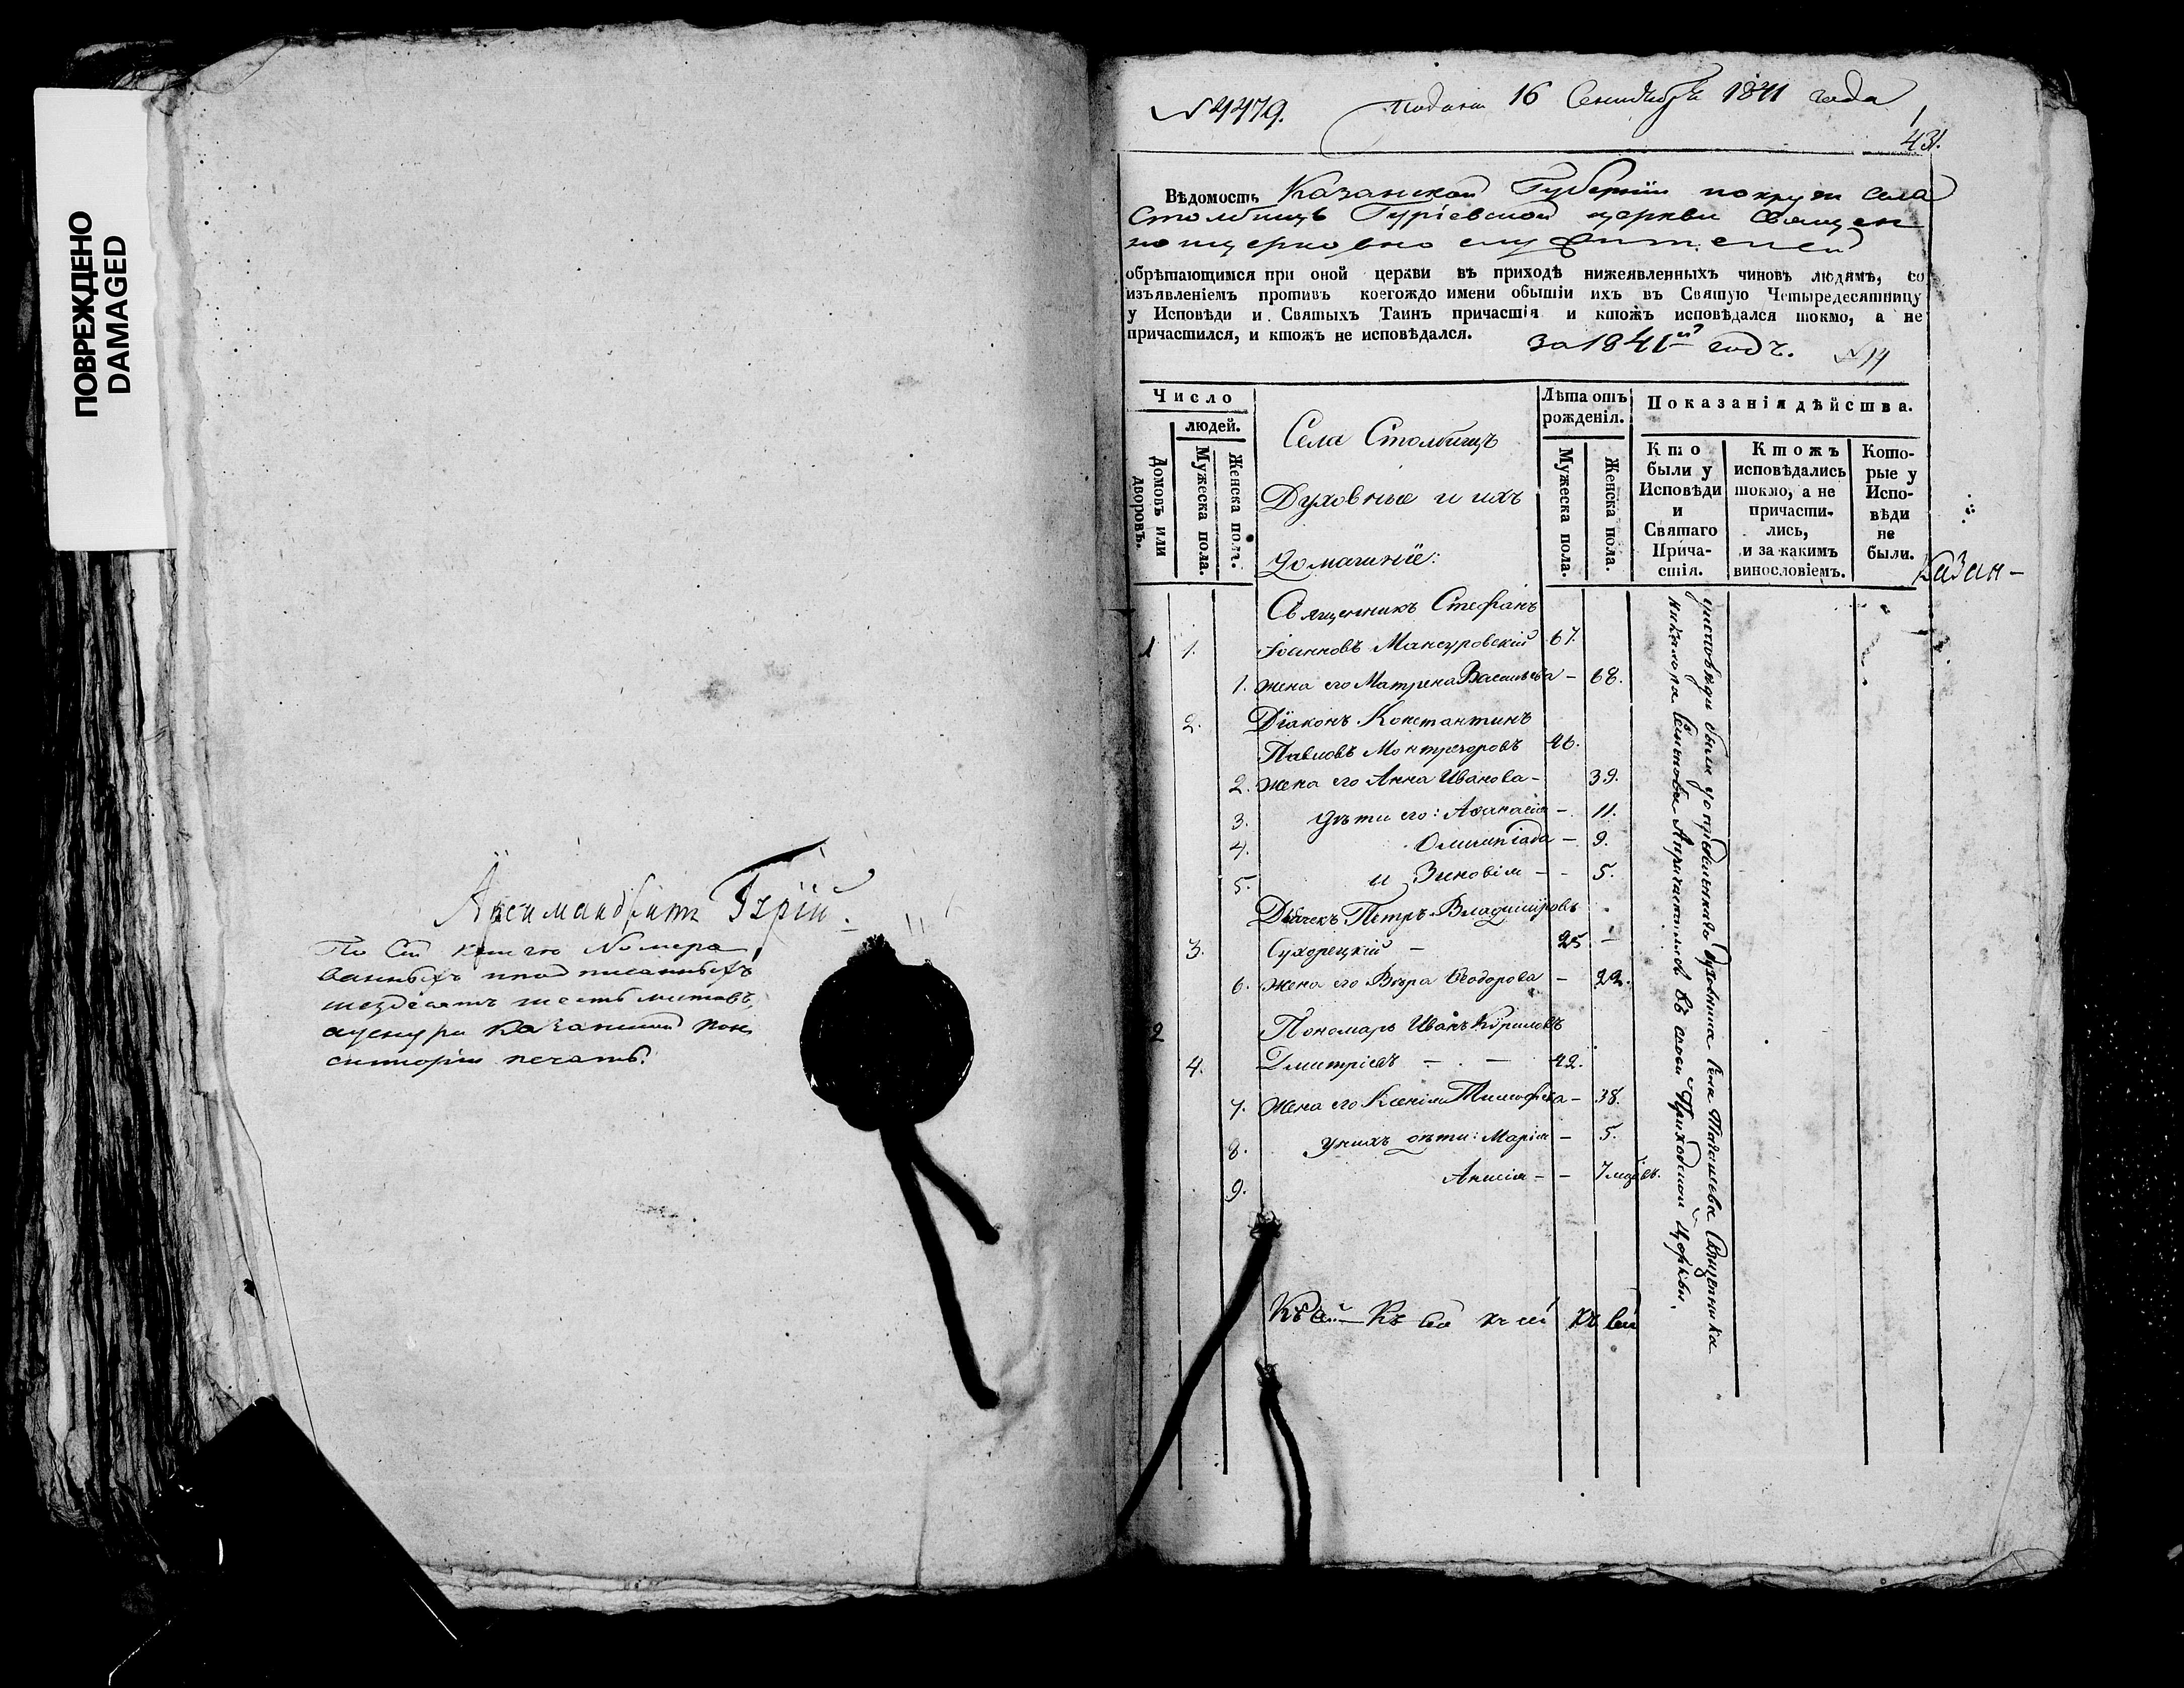 ПОВРЕЖДЕНО
DAMAGED
Архимандритъ Гурій.
По сей книгѣ Номеро
ванныхъ
шездесятъ шесть листовъ,
Казанской Кон
систоріи печать.
№ 4479.
Подана 16 Сентября 1841 года
431.
Вѣдомость Казанской Губерніи и округи села
Столбищъ Гуріевской церкви Священ
но церковно служителей
обрѣтающимся при оной церкви въ приходѣ нижеявленныхъ чиновъ людямъ, со
изъявленіемъ противъ коегождо имени обытіи ихъ въ Святую Четыредесятницу
у Исповѣди и Святыхъ Таинъ причастія и ктожъ исповѣдался токмо, а не
причастился, и ктожъ не исповѣдался.
за 1841й годъ. № 14
Число
людей.
Домовъ или дворовъ.
Мужеска пола.
Женска пола.
Села Столбищъ
Духовные и ихъ
домашніе:
Лѣта отъ
рожденія.
Мужеска пола.
Женска пола.
Показанія дѣйства.
Кто
были у
Исповѣди
и
Святаго
Прича-
стія.
Ктожъ
исповѣдались
токмо, а не
причасти-
лись,
и за какимъ
винословіемъ.
Кото-
рые у
Испо-
вѣди
не
были.
Казан-
Священникъ Стефанъ
1 1. Іоанновъ Мансуровскій 67.
1. жена его Матрена Васильева - 68.
2. Діаконъ Константинъ
Павловъ 46.
2. жена его Анна Иванова - 39.
3. дѣти его: Аѳанасія - 11.
4. Олимпіада - 9.
5. и Зиновія - - 5.
Дьячекъ Петръ Владиміровъ
3. Сухорецкій - 25 -
6. жена его Вѣра Ѳеодорова - 22.
2 Пономарь Иванъ Кириловъ
4. Дмитріевъ - - 42.
7. жена его Ксенія Тимофеева - 38.
8. у нихъ дѣти: Марія - 5.
9. Анисія - - 7 мѣсец.
у исповѣди были у опредѣленнаго духовника Села Священника
Никанора а причастились въ своей Приходской Церкви.